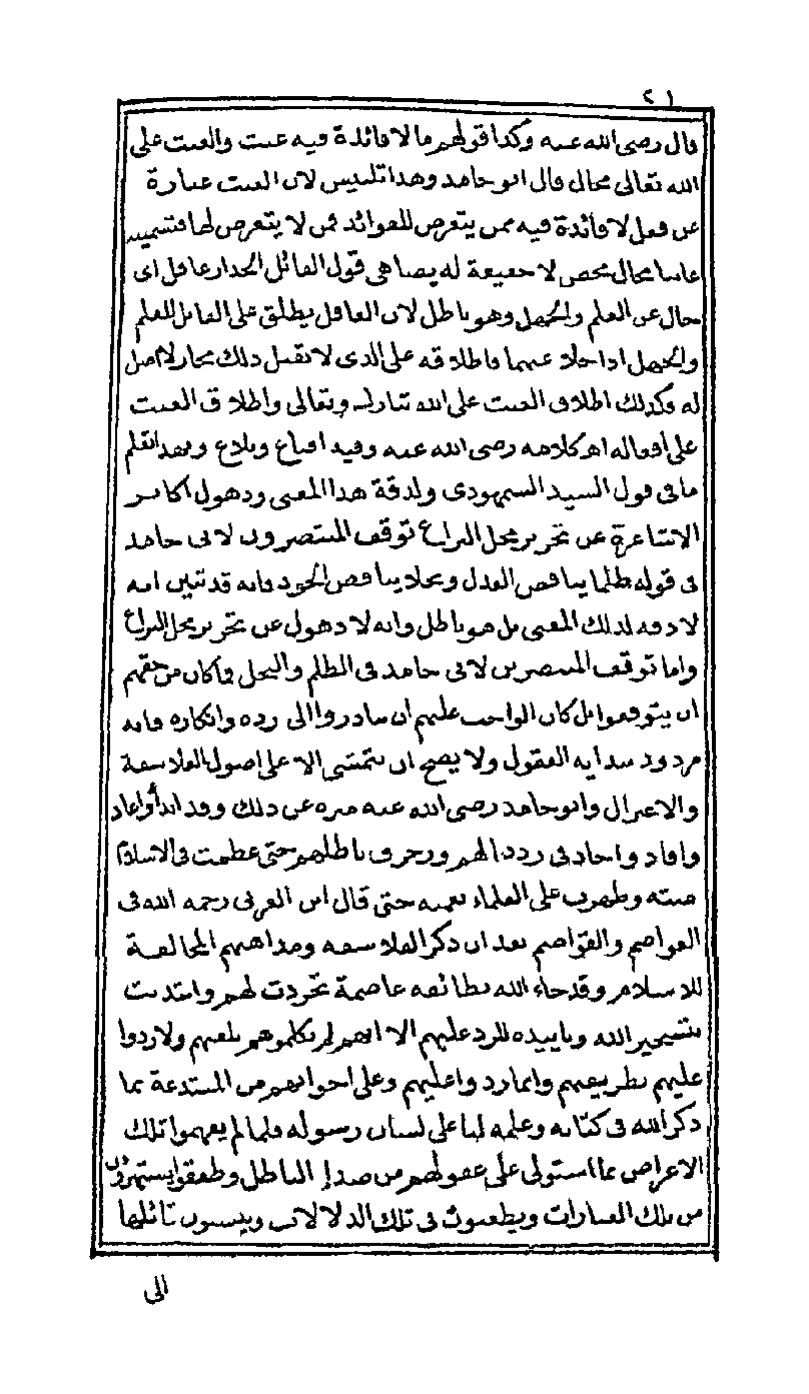 ٢١
قال رضى الله عنه وكذا قولهم ما لا فائدة فيه عبث والعبث على
الله تعالى محال قال ابو حامد وهذا تلبيس لان العبث عبارة
عن فعل لا فائدة فيه ممن يتعرض للفوائد فمن لا يتعرض لها فتسميته
عابثا مجاز محض لا حقيقة له يضاهى قول القائل الجدار غافل اى
خال عن العلم والجهل وهو باطل لان الغافل يطلق على القابل للعلم
والجهل اذا خلا عنهما فاطلاقه على الذى لا يقبل ذلك مجاز لا اصل
له فكذلك اطلاق العبث على الله تبارك وتعالى واطلاق العبث
على افعاله اهـ كلامه رضى الله عنه وفيه اقناع وبلاغ وبهذا تعلم
ما فى قول السيد السمهودى ولدقة هذا المعنى وذهول اكابر
الاشاعرة عن تحرير محل النزاع توقف المنتصرون لابى حامد
فى قوله ظلما يناقض العدل وبخلا يناقض الجود فانه قد تبين انه
لا دقة لذلك المعنى بل هو باطل وانه لا ذهول عن تحرير محل النزاع
واما توقف المنتصرين لابى حامد فى الظلم والبخل فما كان من حقهم
ان يتوقفوا بل كان الواجب عليهم ان يبادروا الى رده وانكاره فانه
مردود ببداية العقول ولا يصح ان يتمشى الا على اصول الفلاسفة
والاعتزال وابو حامد رضى الله عنه مبرء عن ذلك وقد ابدأ واعاد
وافاد واجاد فى رد ضلالهم وزخرف باطلهم حتى عظمت فى الاسلام
منته وظهرت على العلماء نعمته حتى قال ابن العربى رحمه الله فى
العواصم والقواصم بعد ان ذكر الفلاسفة ومذاهبهم المخالفة
للاسلام وقد جاء الله بطائفة عاصمة تجردت لهم وانتدبت
بتسخير الله وتاييده للرد عليهم الا انهم لم يكلموهم بلغتهم ولا ردوا
عليهم بطريقتهم وانما ردوا عليهم وعلى اخوانهم من المبتدعة بما
ذكر الله فى كتابه وعلمه لنا على لسان رسوله فلما لم يفهموا تلك
الاغراض مما استولى على عقولهم من صدإ الباطل وطفقوا يستهزؤن
من تلك العبارات ويطعنون فى تلك الدلالات وينسبون قائلها
الى